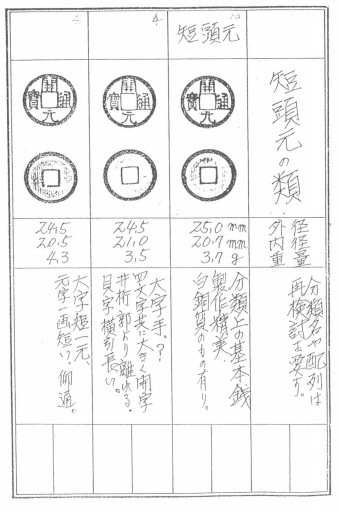 短頭元の類
外径
内径
重量
分類名や配列は
再検討を要す。
短頭元
開元通寳
25.0 mm
20.7 mm
3.7 g
分類上の基本銭
製作精美
白銅質のもの有り。
4
開元通寳
24.5
21.0
3.5
大字手、?
四文字共に大きく開字
井桁郭より離れる。
貝字横引長い。
開元通寳
24.5
20.5
4.3
大字短一元、
元字一画短い、仰通。